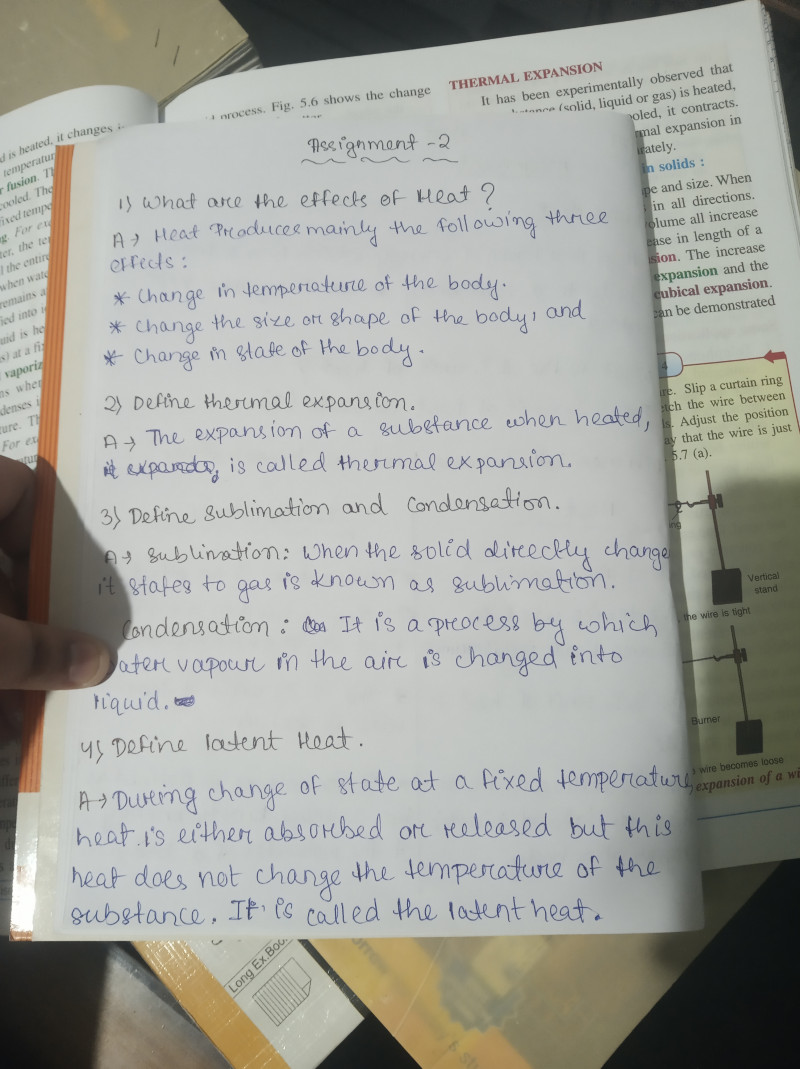 process. Fig. 5.6 shows the change
d is heated, it changes
temperatur
fusion. T
cooled. The
fixed tempe
For ex
the entire
when wate
remains a
vaporiz
For ex
THERMAL EXPANSION
It has been experimentally observed that
(solid, liquid or gas) is heated,
ooled, it contracts.
mal expansion in
rately.
in solids :
pe and size. When
in all directions.
olume all increase
ease in length of a
sion. The increase
expansion and the
cubical expansion.
can be demonstrated
4
re. Slip a curtain ring
tch the wire between
s. Adjust the position
ay that the wire is just
5.7 (a).
ing
Vertical
stand
the wire is tight
Burner
wire becomes loose
expansion of a wi
Assignment - 2
1) What are the effects of Heat ?
A → Heat Produces mainly the following three
effects :
* Change in temperature of the body.
* Change the size or shape of the body, and
* Change in state of the body.
2) Define thermal expansion.
A → The expansion of a substance when heated,
is called thermal expansion.
3) Define Sublimation and Condensation.
A → Sublimation: When the solid directly change
it states to gas is known as sublimation.
Condensation : It is a process by which
ater vapour in the air is changed into
liquid.
4) Define latent Heat.
A → During change of state at a fixed temperature,
heat is either absorbed or released but this
heat does not change the temperature of the
substance. It is called the latent heat.
Long Ex Boo